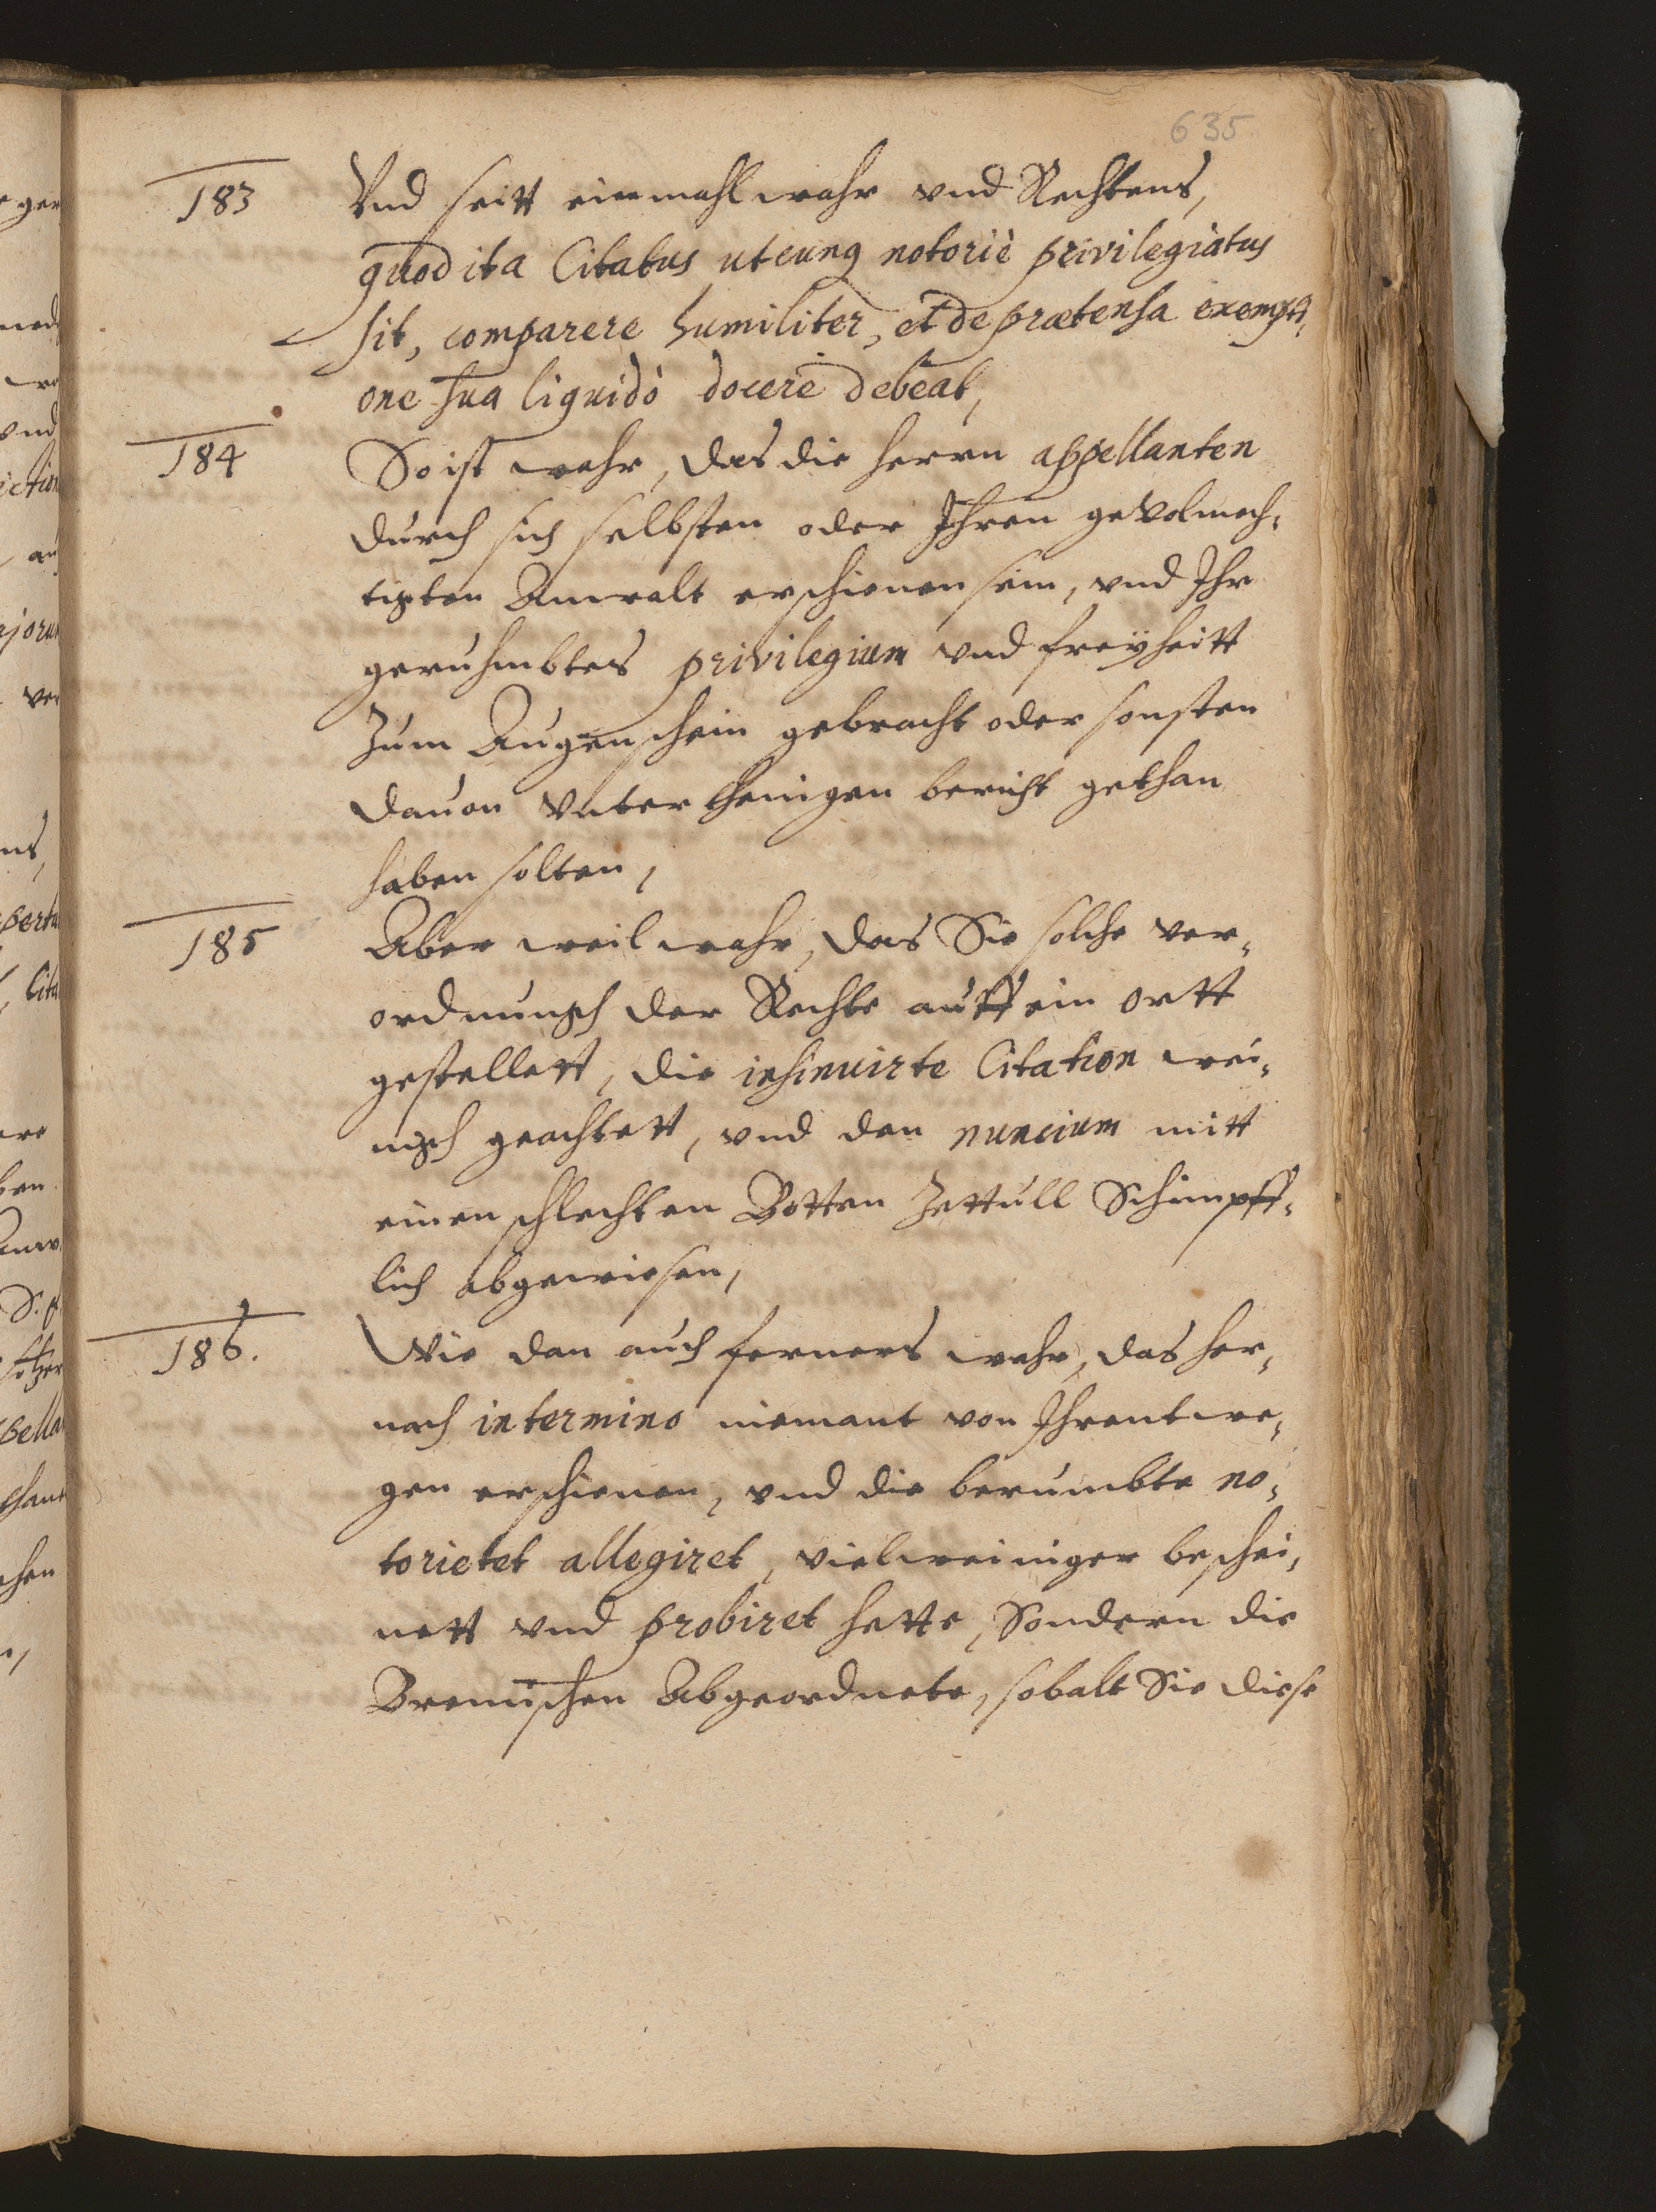 635
183 Vnd seitt einmahl wahr vnd Rechtens,
quod ita Citatus utcunq notoriè privilegiatus
sit, comparere humiliter, et de prætensa exempti,
one sua liquidò docere debeat,
184 So ist wahr, das die herrn appellanten
durch sich selbsten oder Ihren gevolmech,
tigten Anwalt erschienen sein, vnd Ihr
geruhmbtes privilegium vnd freÿheitt
Zum Augenschein gebracht oder sonsten
dauon vnterthenigen bericht gethan
haben solten,
185 Aber weil wahr, das Sie solche ver,
ordnungh der Rechte auff ein ortt
gestellett, die insinuirte Citation wei,
nigh geachtett, vnd den nuncium mitt
einen schlechten Botten Zettull Schimpff,
lich abgewiesen,
186. Wie dan auch ferners wahr, das her,
nach in termino niemant von Ihrentwe,
gen erschienen, vnd die berumbte no,
torietet allegiret, vielweiniger beschei,
nett vnd probiret hette, Sondern die
Bremischen Abgeordnete, sobalt Sie diese